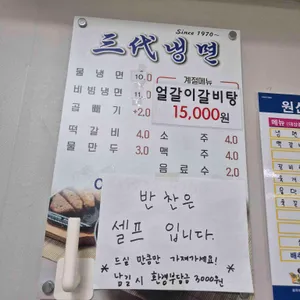 Since 1970~
三代냉면
물냉면 10.0
비빔냉면 11.0
곱빼기 +2.0
떡갈비 4.0
물만두 3.0
계절메뉴
얼갈이갈비탕
15,000원
소주 4.0
맥주 4.0
음료수 2.0
반찬은
셀프 입니다.
드실 만큼만 가져가세요!
* 남길시 환경부담금 3000원 *
원산
메뉴